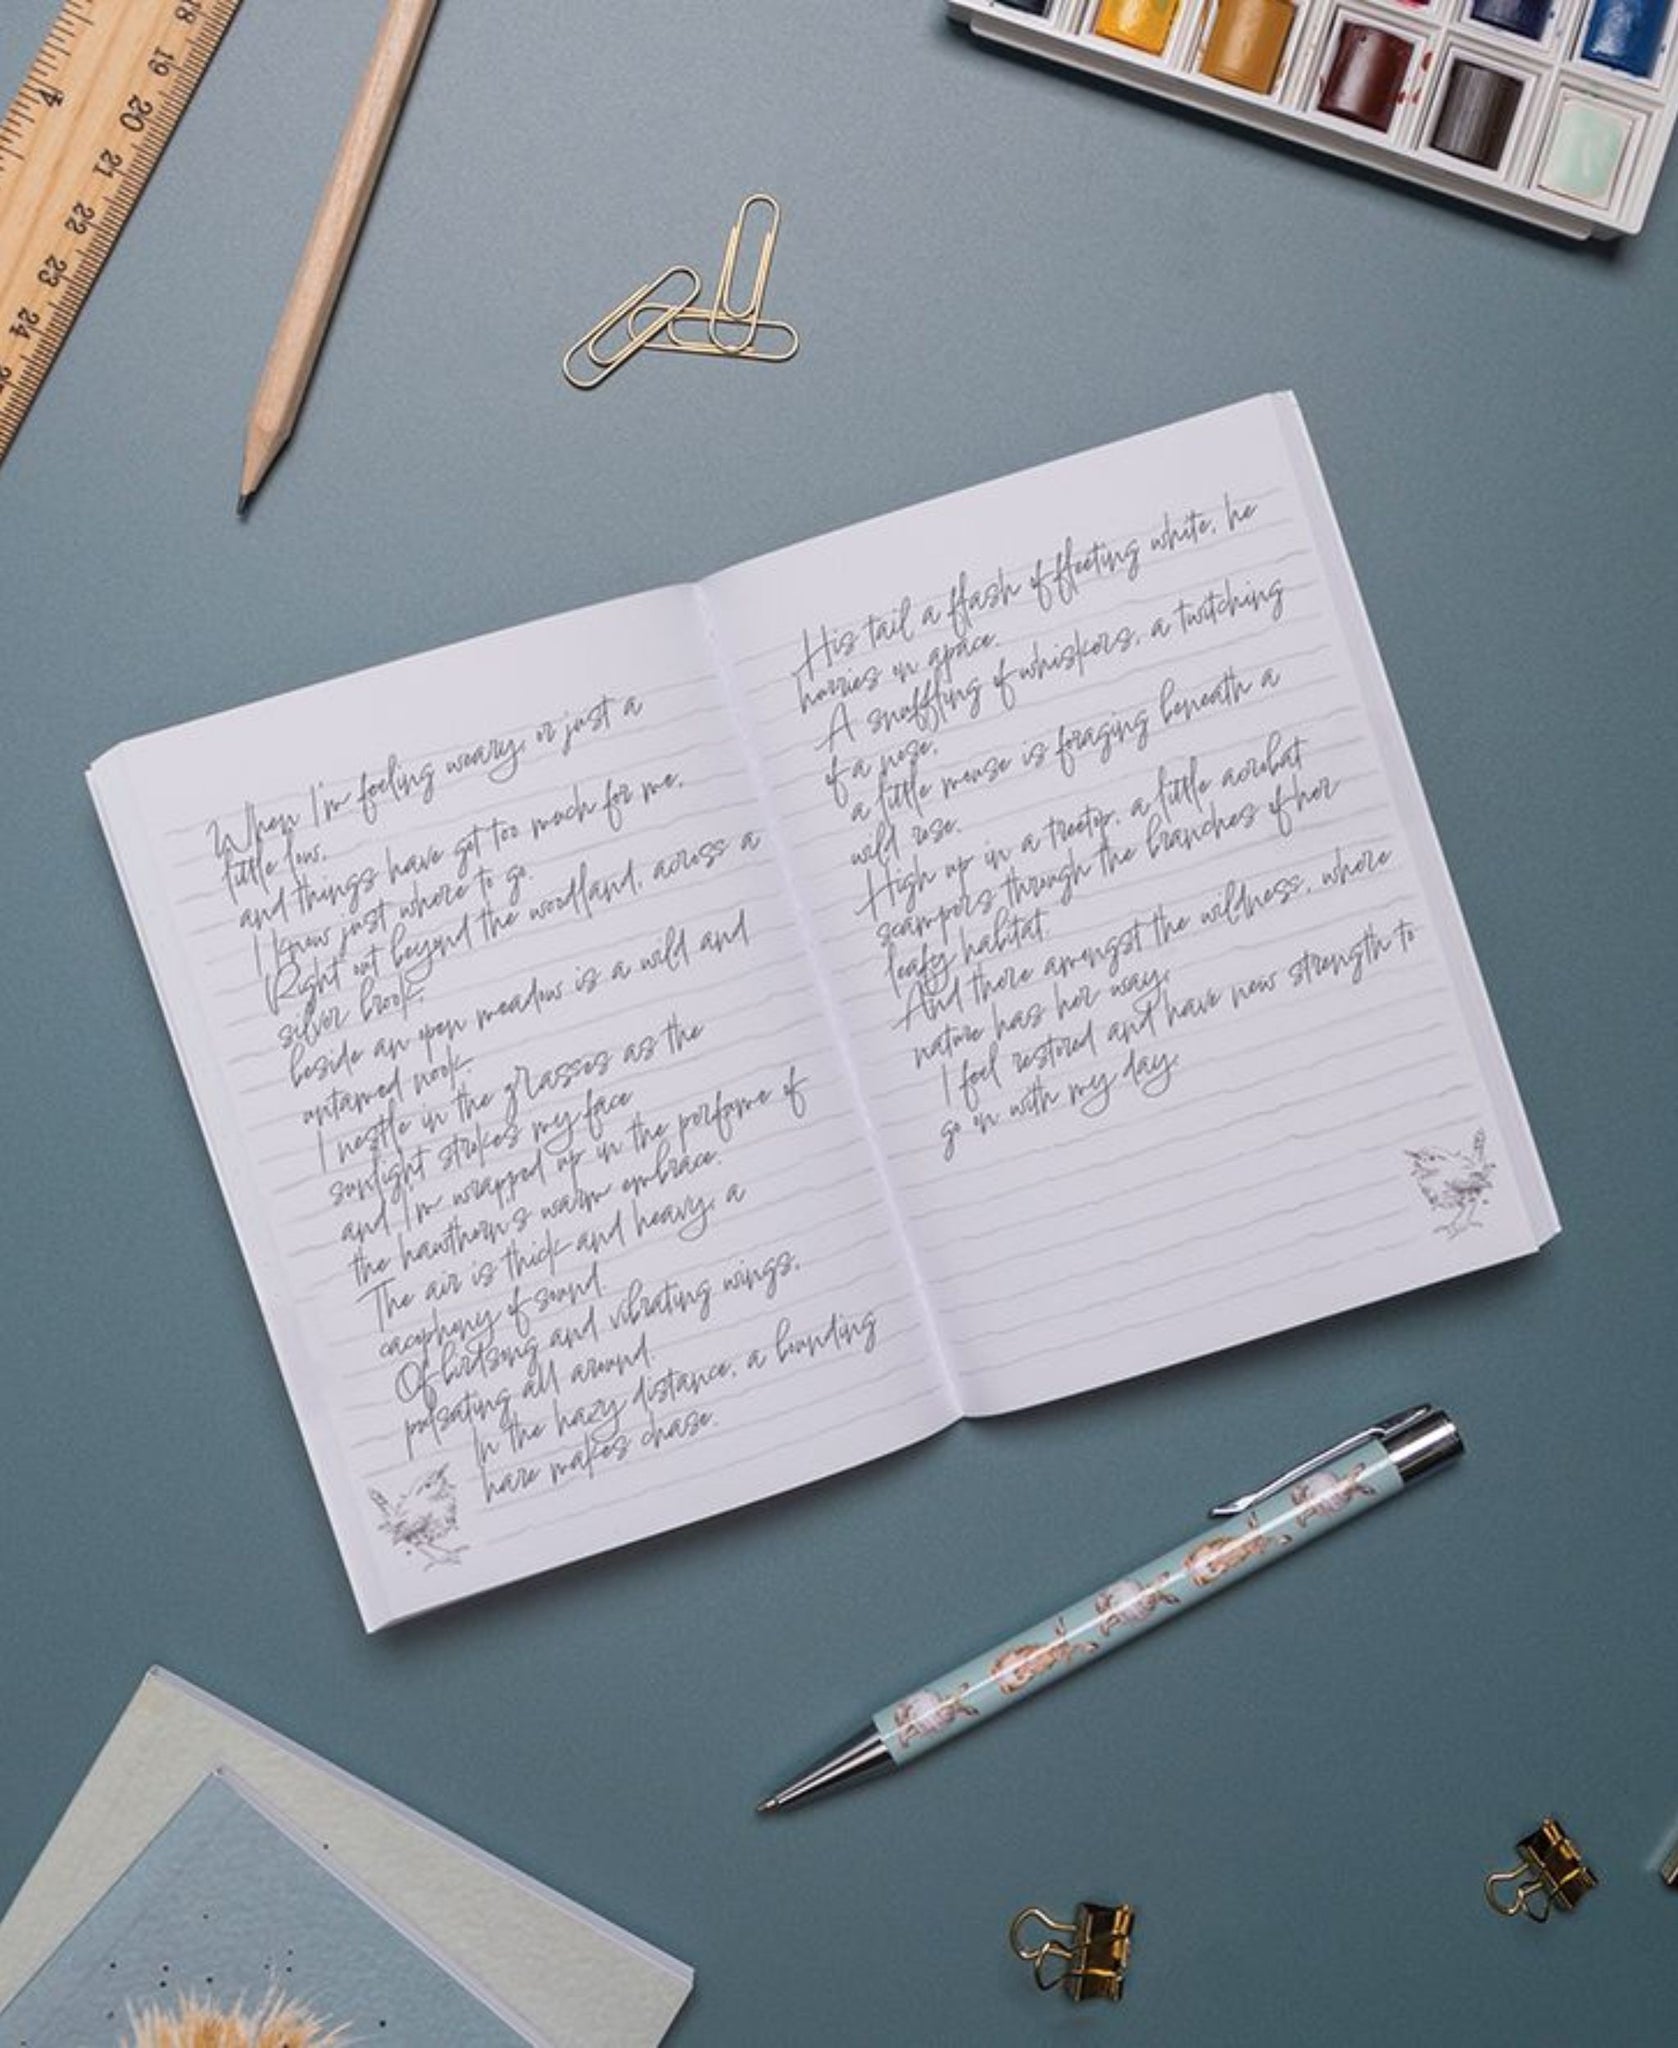 4
18
19
20
21
22
23
24
When I'm feeling weary, or just a
little low,
and things have got too much for me,
I know just where to go.
Right out beyond the woodland, across a
silver brook,
beside an open meadow is a wild and
untamed nook.
I nestle in the grasses as the
sunlight strokes my face
and I'm wrapped up in the perfume of
the hawthorn's warm embrace.
The air is thick and heavy, a
cacophony of sound.
Of birdsong and vibrating wings,
pulsating all around.
In the hazy distance, a bounding
hare makes chase.
His tail a flash of fleeting white, he
hurries on apace.
A snuffling of whiskers, a twitching
of a nose,
a little mouse is foraging beneath a
wild rose.
High up in a treetop, a little acrobat
scampers through the branches of her
leafy habitat.
And there amongst the wildness, where
nature has her way,
I feel restored and have new strength to
go on with my day.